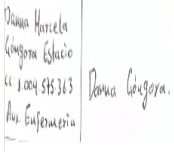 Danna Marcela
Góngora Estacio
cc. 1.004.575.363
Aux. Enfermería
Danna Góngora.